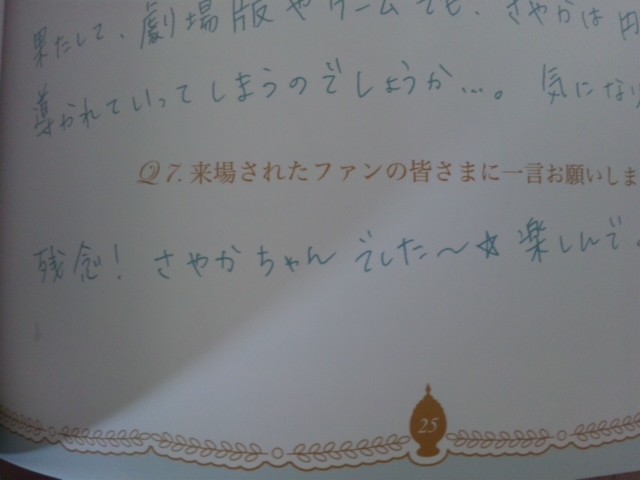 果たして、劇場版やゲームでも、さやかは円
導かれていってしまうのでしょうか…。 気になり
Q7. 来場されたファンの皆さまに一言お願いしま
残念! さやかちゃん でした〜☆ 楽しんで。
25